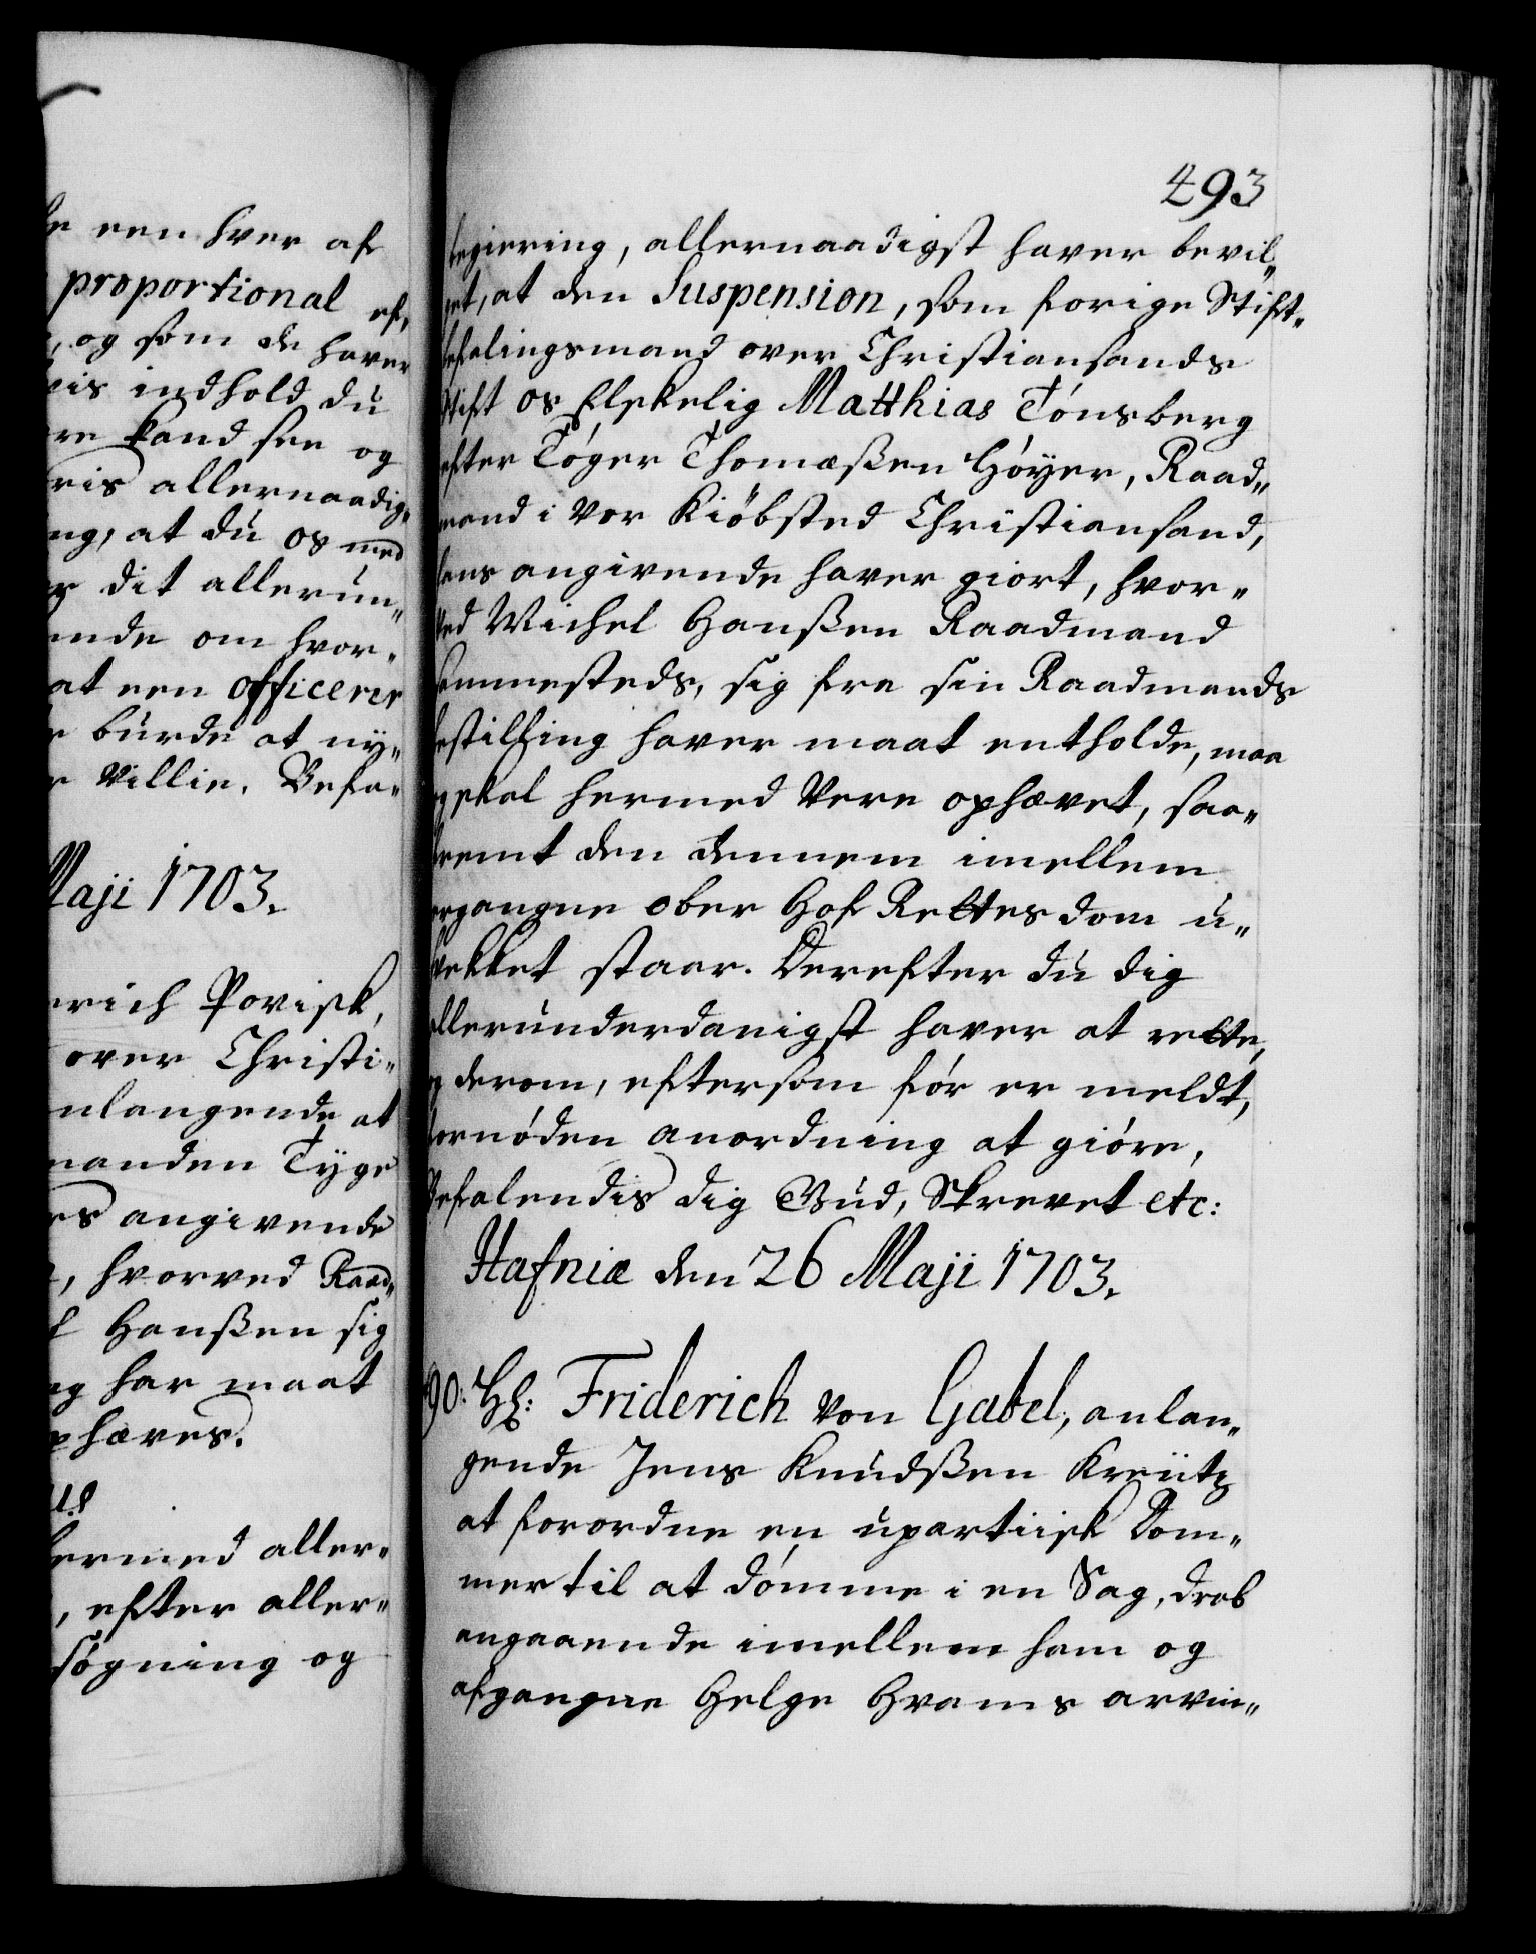 een hver af
proportional ef,
og som de haver
indhold du
kand see og
allernaadig,,
at du os med
dit allerun,,
om hvor,,
at een officerer
burde at ny,,
Villie. Befa,,
Maji 1703.
Povisk,
over Christi,,
anlangende at
Tyge
angivende
, hvorved Raad,,
Hanßen sig
har maat
ophæves.
hermed aller,,
, efter aller,,
søgning og
493
regiering, allernaadigst haver bevil,,
get, at den Suspension, som forige Stift,,
befalingsmand over Christiansands
Stift os Elskelig Matthias Tónsberg
efter Tóger Thomæßen Hóyer, Raad,,
mand i vor Kiöbsted Christiansand,
hans angivende haver giort, hvor,,
ved Michel Hanßen Raadmand
sammesteds, sig fra sin Raadmands
bestilling haver maat entholde, maa
og skal hermed Vere ophævet, saa,,
fremt den dennem imellem
ergangne ober Hof Rettes dom u,,
svekket staar. Derefter du dig
allerunderdanigst haver at rette,
og derom, eftersom fór er meldt,
fornóden anordning at gióre,
Befalendis dig Gud, Skrevet etc:
Hafniæ den 26 Maji 1703.
90: Hl: Friderich von Gabel, anlan,,
gende Jens Knudßen Kreütz
at forordne en upartiisk Dom,,
mer til at dómme i en Sag, drab
angaaende imellem ham og
afgangne Helge Hvams arvin,,